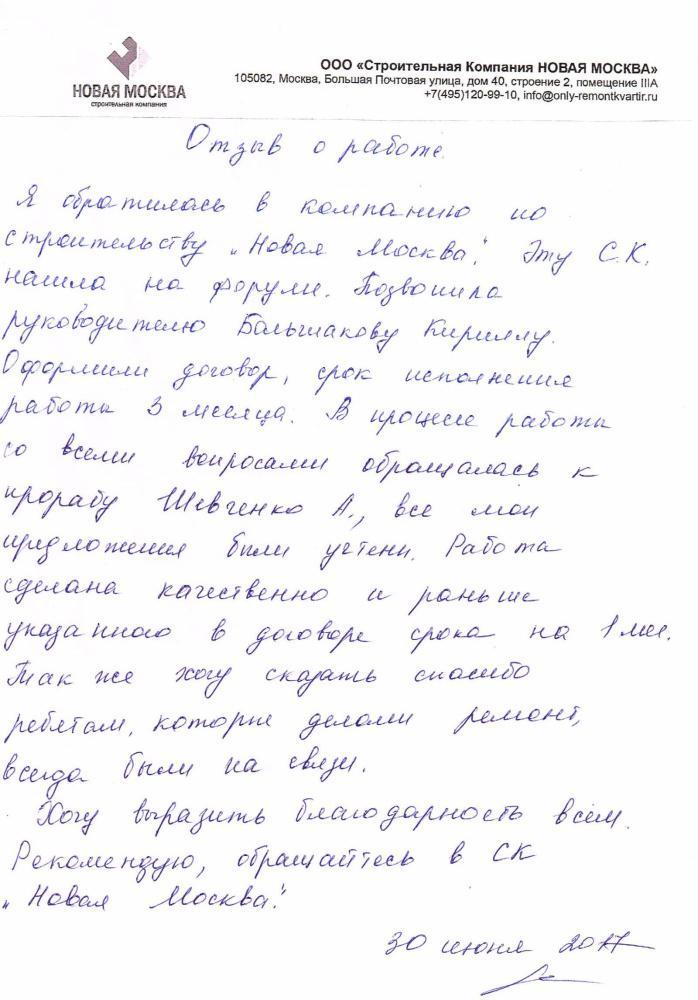 НОВАЯ МОСКВА
строительная компания
ООО «Строительная Компания НОВАЯ МОСКВА»
105082, Москва, Большая Почтовая улица, дом 40, строение 2, помещение IIIА
+7(495)120-99-10, info@only-remontkvartir.ru
Отзыв о работе.
Я обратилась в компанию по
строительству „Новая Москва". Эту С.К.
нашла на форуми. Позвонила
руководителю Большакову Кириллу.
Оформили договор, срок исполнения
работы 3 месяца. В процесе работы
со всеми вопросами обращалась к
прорабу Шевченко А., все мои
предложения были учтени. Работа
сделана качественно и раньше
указанного в договоре срока на 1 мес.
Так же хочу сказать спасибо
ребятам, которые делами ремонт,
всегда были на связи.
Хочу выразить благодарность всем.
Рекомендую, обращайтесь в СК
„Новая Москва".
30 июня 2017